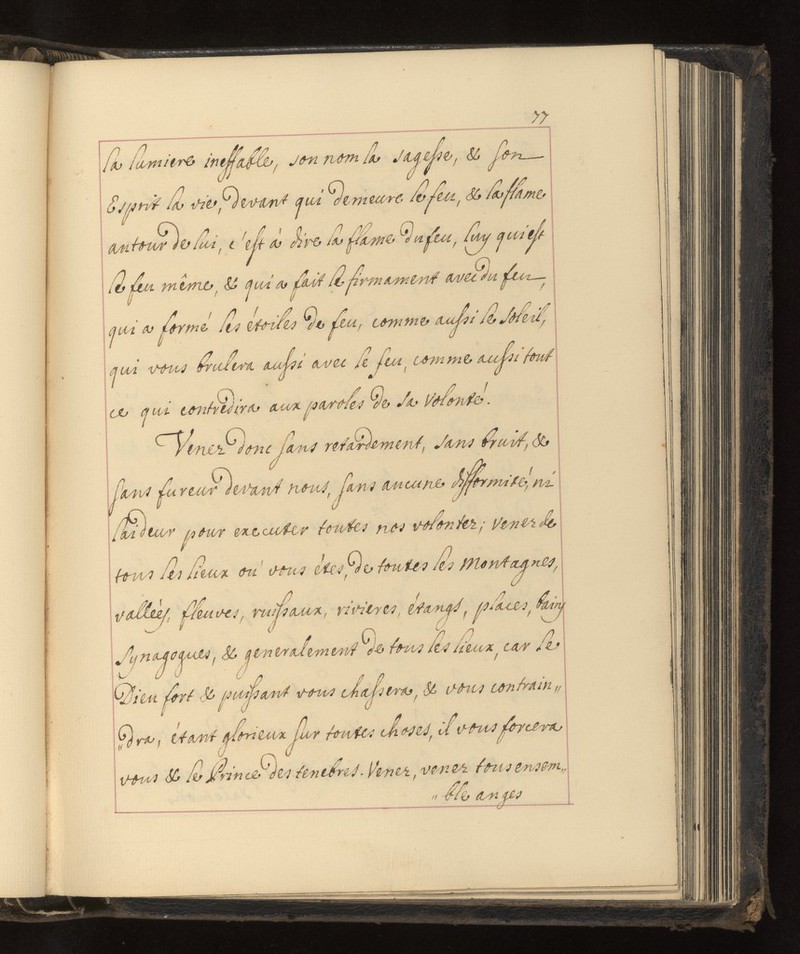 77
la lumiere ineffable, son nom la sagesse, & son
Esprit la vie, devant qui demeure le feu, & la flame
autour de lui, c'est á dire la flame du feu, luy qui est
le feu même, & qui a fait le firmament avec du feu,
qui a formé les étoiles de feu, comme aussi le soleil,
qui vous brulera aussi avec le feu, comme aussi tout
ce qui contredira aux paroles de sa volonté.
Venez donc sans retardement, sans bruit, &
sans fureur devant nous, sans aucune difformité, ni
laideur pour executer toutes nos volontez; venez de
tous les lieux ou vous étes, de toutes les montagnes,
vallées, fleuves, ruissaux, rivieres, étangs, places, bains
synagogues, & generalement de tous les lieux, car le
Dieu fort & puissant vous chassera, & vous contrain„
„dra, étant glorieux sur toutes choses, il vous forcera
vous & le Prince des tenebres. Venez, venez tous ensem„
„ble anges